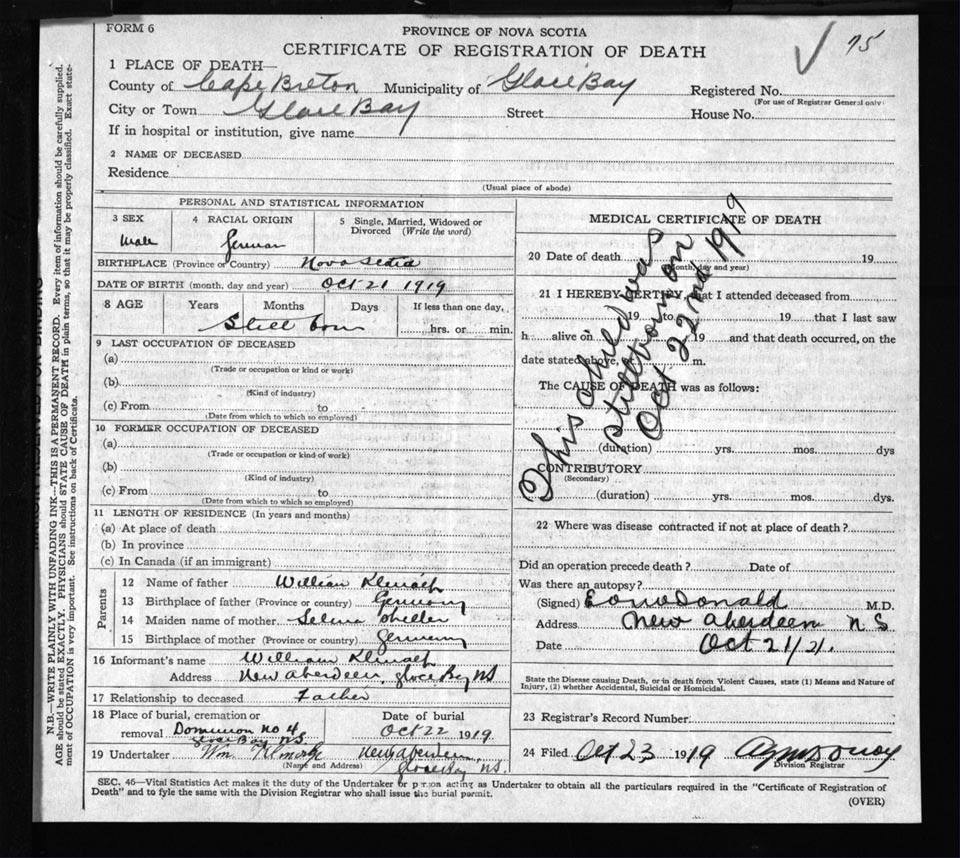 FORM 6
PROVINCE OF NOVA SCOTIA
CERTIFICATE OF REGISTRATION OF DEATH
75
1 PLACE OF DEATH—
County of Cape Breton Municipality of Glace Bay Registered No.
(For use of Registrar General only)
City or Town Glace Bay Street House No.
If in hospital or institution, give name
2 NAME OF DECEASED
Residence
(Usual place of abode)
PERSONAL AND STATISTICAL INFORMATION
3 SEX 4 RACIAL ORIGIN 5 Single, Married, Widowed or
Divorced (Write the word)
Male German
BIRTHPLACE (Province or Country) Nova Scotia
DATE OF BIRTH (month, day and year) Oct 21 1919
8 AGE Years Months Days If less than one day,
Still born hrs. or min.
9 LAST OCCUPATION OF DECEASED
(a)
(Trade or occupation or kind of work)
(b)
(Kind of industry)
(c) From to
(Date from which to which so employed)
10 FORMER OCCUPATION OF DECEASED
(a)
(Trade or occupation or kind of work)
(b)
(Kind of industry)
(c) From to
(Date from which to which so employed)
11 LENGTH OF RESIDENCE (In years and months)
(a) At place of death
(b) In province
(c) In Canada (if an immigrant)
Parents
12 Name of father William
13 Birthplace of father (Province or country) Germany
14 Maiden name of mother Selma
15 Birthplace of mother (Province or country) Germany
16 Informant's name William
Address New Aberdeen, Glace Bay NS
17 Relationship to deceased Father
18 Place of burial, cremation or Date of burial
removal Dominion No 4 Oct 22 1919.
Glace Bay NS
19 Undertaker Wm New Aberdeen
(Name and Address) Glace Bay NS.
MEDICAL CERTIFICATE OF DEATH
20 Date of death 19
(Month, day and year)
21 I HEREBY CERTIFY, that I attended deceased from
19 to 19 that I last saw
h alive on 19 and that death occurred, on the
date stated above, at m.
The CAUSE OF DEATH was as follows:
(duration) yrs. mos. dys
CONTRIBUTORY
(Secondary)
(duration) yrs. mos. dys.
This child was
stillborn on
Oct 22nd 1919
22 Where was disease contracted if not at place of death?
Did an operation precede death? Date of
Was there an autopsy?
(Signed) M.D.
Address New Aberdeen N S
Date Oct 21/21.
State the Disease causing Death, or in death from Violent Causes, state (1) Means and Nature of
Injury, (2) whether Accidental, Suicidal or Homicidal.
23 Registrar's Record Number
24 Filed Oct 23 1919
Division Registrar
SEC. 46—Vital Statistics Act makes it the duty of the Undertaker or person acting as Undertaker to obtain all the particulars required in the "Certificate of Registration of
Death" and to fyle the same with the Division Registrar who shall issue the burial permit.
(OVER)
N.B.—WRITE PLAINLY WITH UNFADING INK—THIS IS A PERMANENT RECORD. Every item of information should be carefully supplied.
AGE should be stated EXACTLY. PHYSICIANS should STATE CAUSE OF DEATH in plain terms, so that it may be properly classified. Exact state-
ment of OCCUPATION is very important. See instructions on back of Certificate.